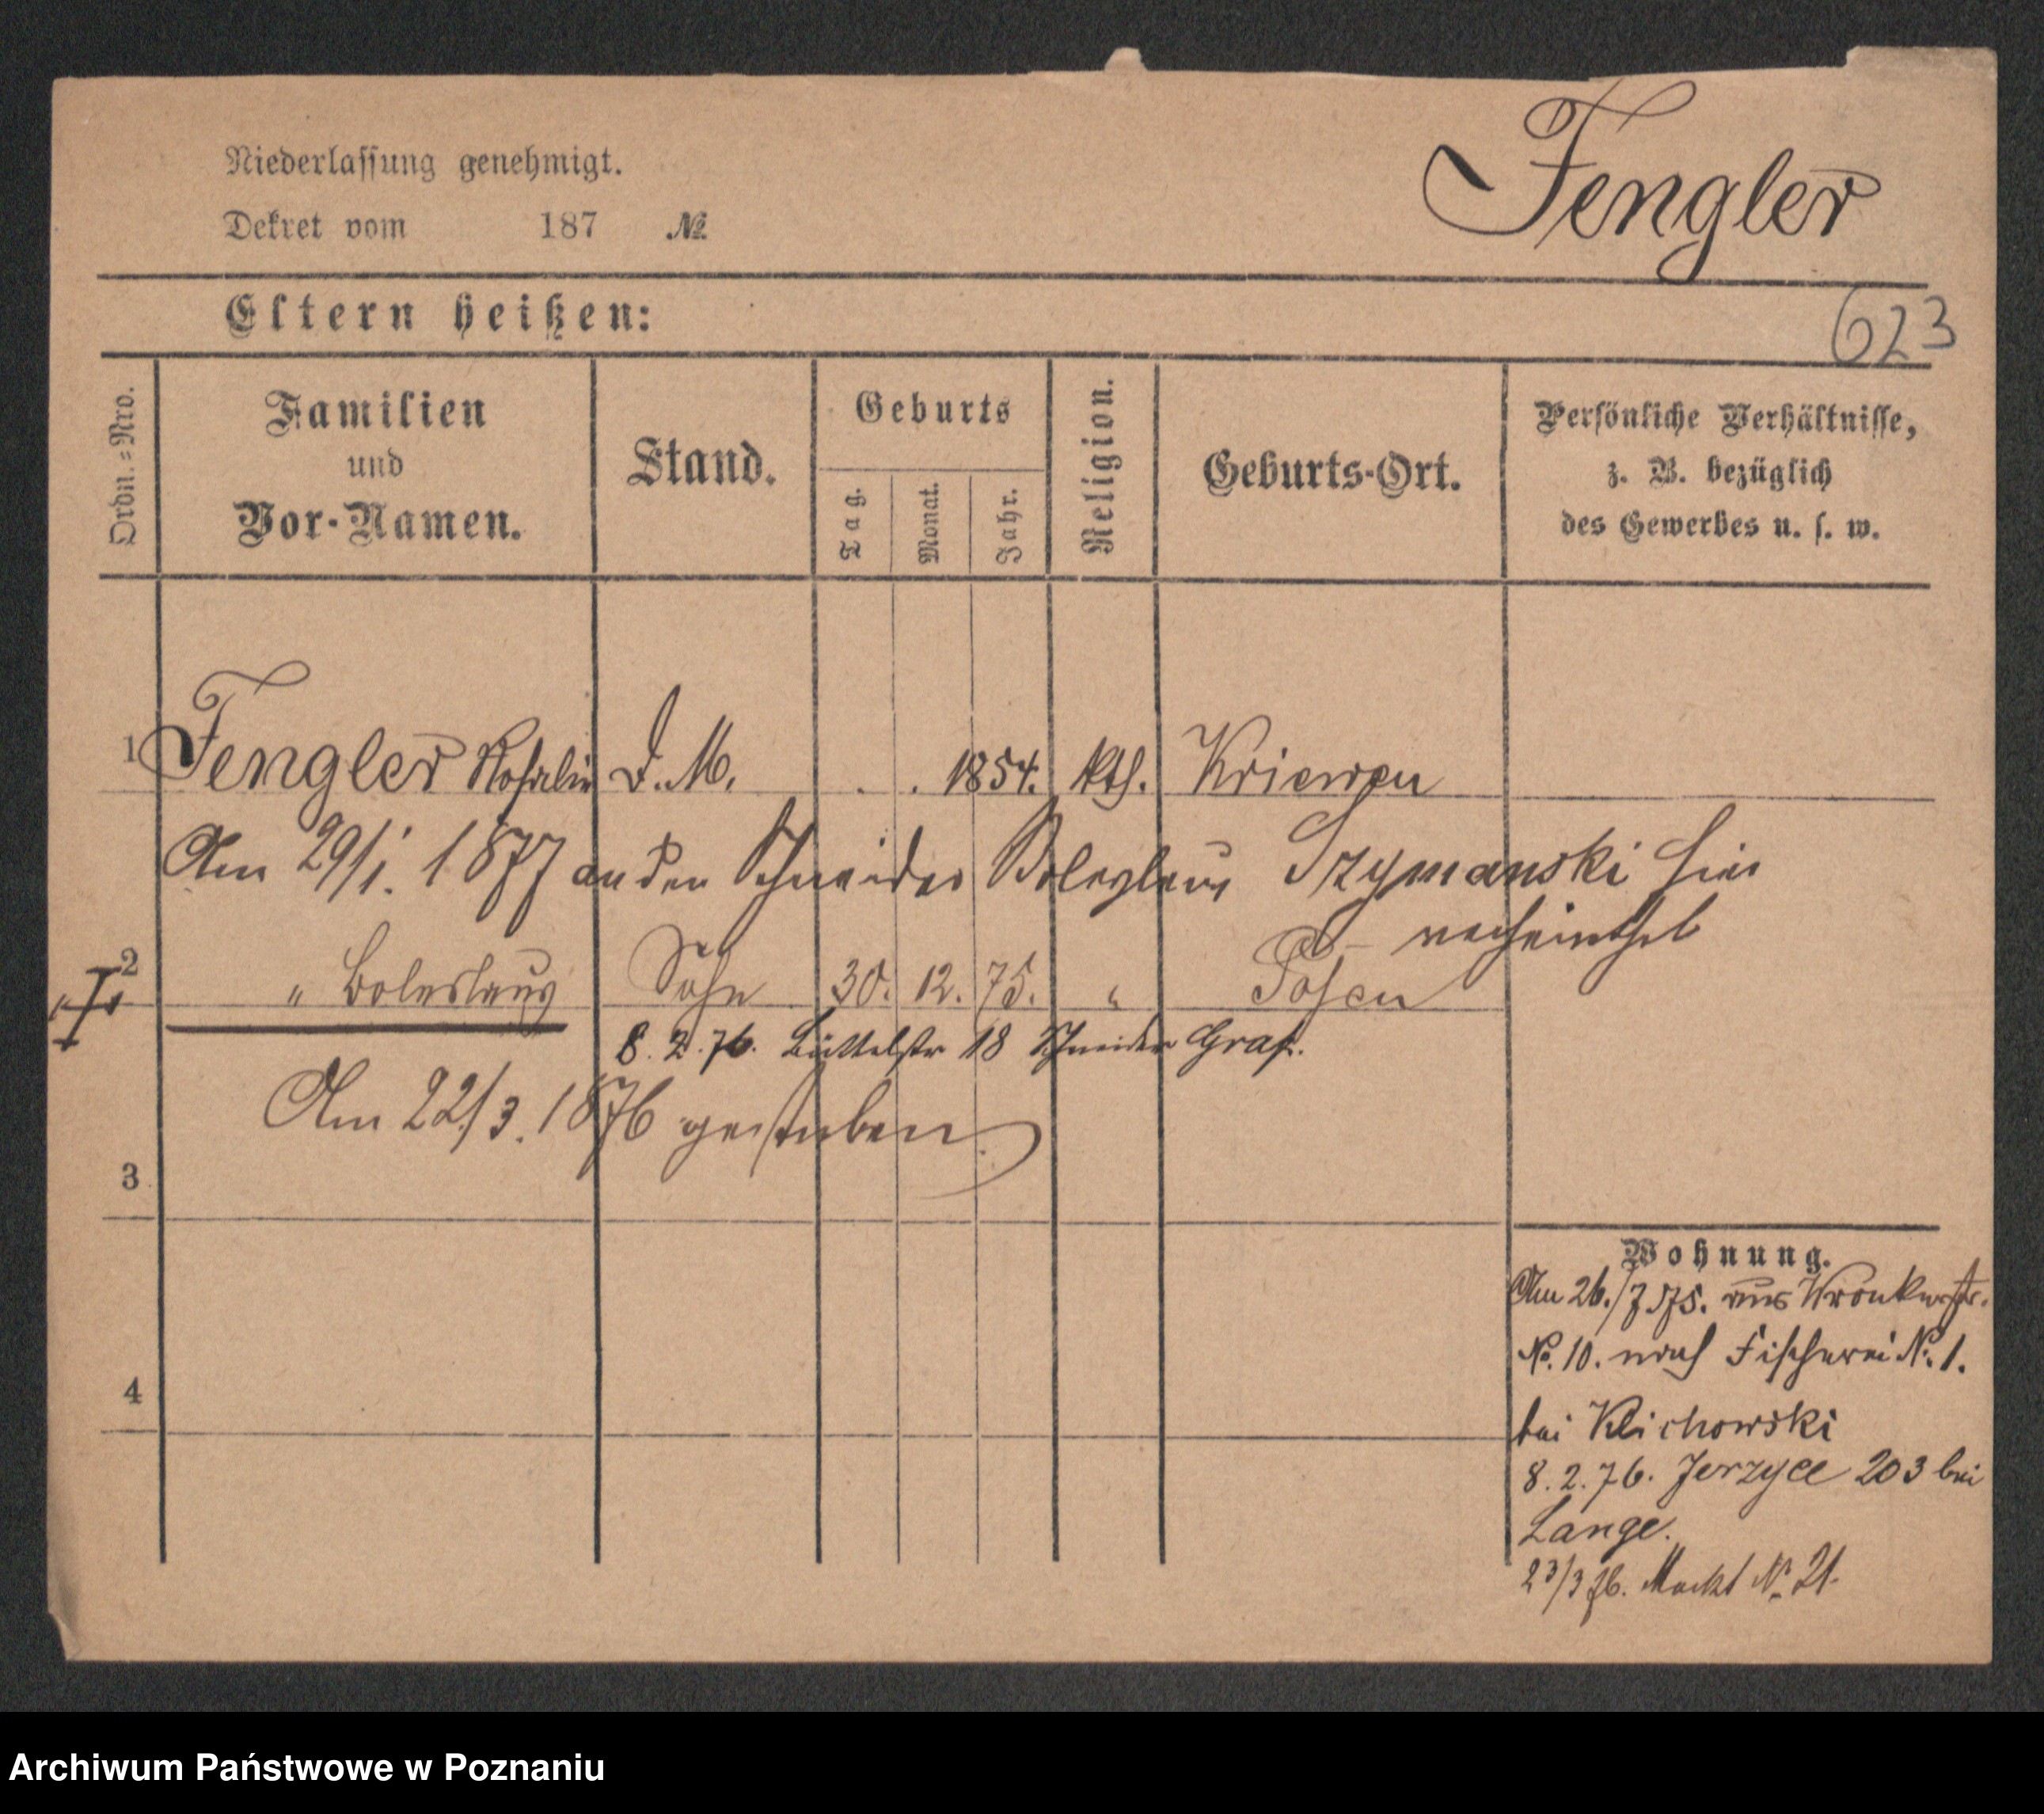 Niederlassung genehmigt.
Fengler
Dekret vom 187 №
Eltern heißen:
623
Ordn.=Nro.
Familien
und
Vor-Namen.
Stand.
Geburts
Tag.
Monat.
Jahr.
Religion.
Geburts-Ort.
Persönliche Verhältnisse,
z. B. bezüglich
des Gewerbes u. s. w.
1 Fengler Rosalie D. M. . . 1854. kth. Kriewen
Am 29/1. 1877 an den Schneider Boleslaus Szymanski hier
verheirathet
2 " Boleslaus Sohn 30. 12. 75. " Posen
8. 2. 76. Büttelstr 18 Schneider Graf.
Am 22/3. 1876 gestorben
3
Wohnung.
Am 26./7 75. aus Wronkerstr.
No. 10. nach Fischerei No. 1.
4
bei Klichowski
8. 2. 76. Jerzyce 203 bei
Lange.
23/3 76. Markt No. 21.
Archiwum Państwowe w Poznaniu